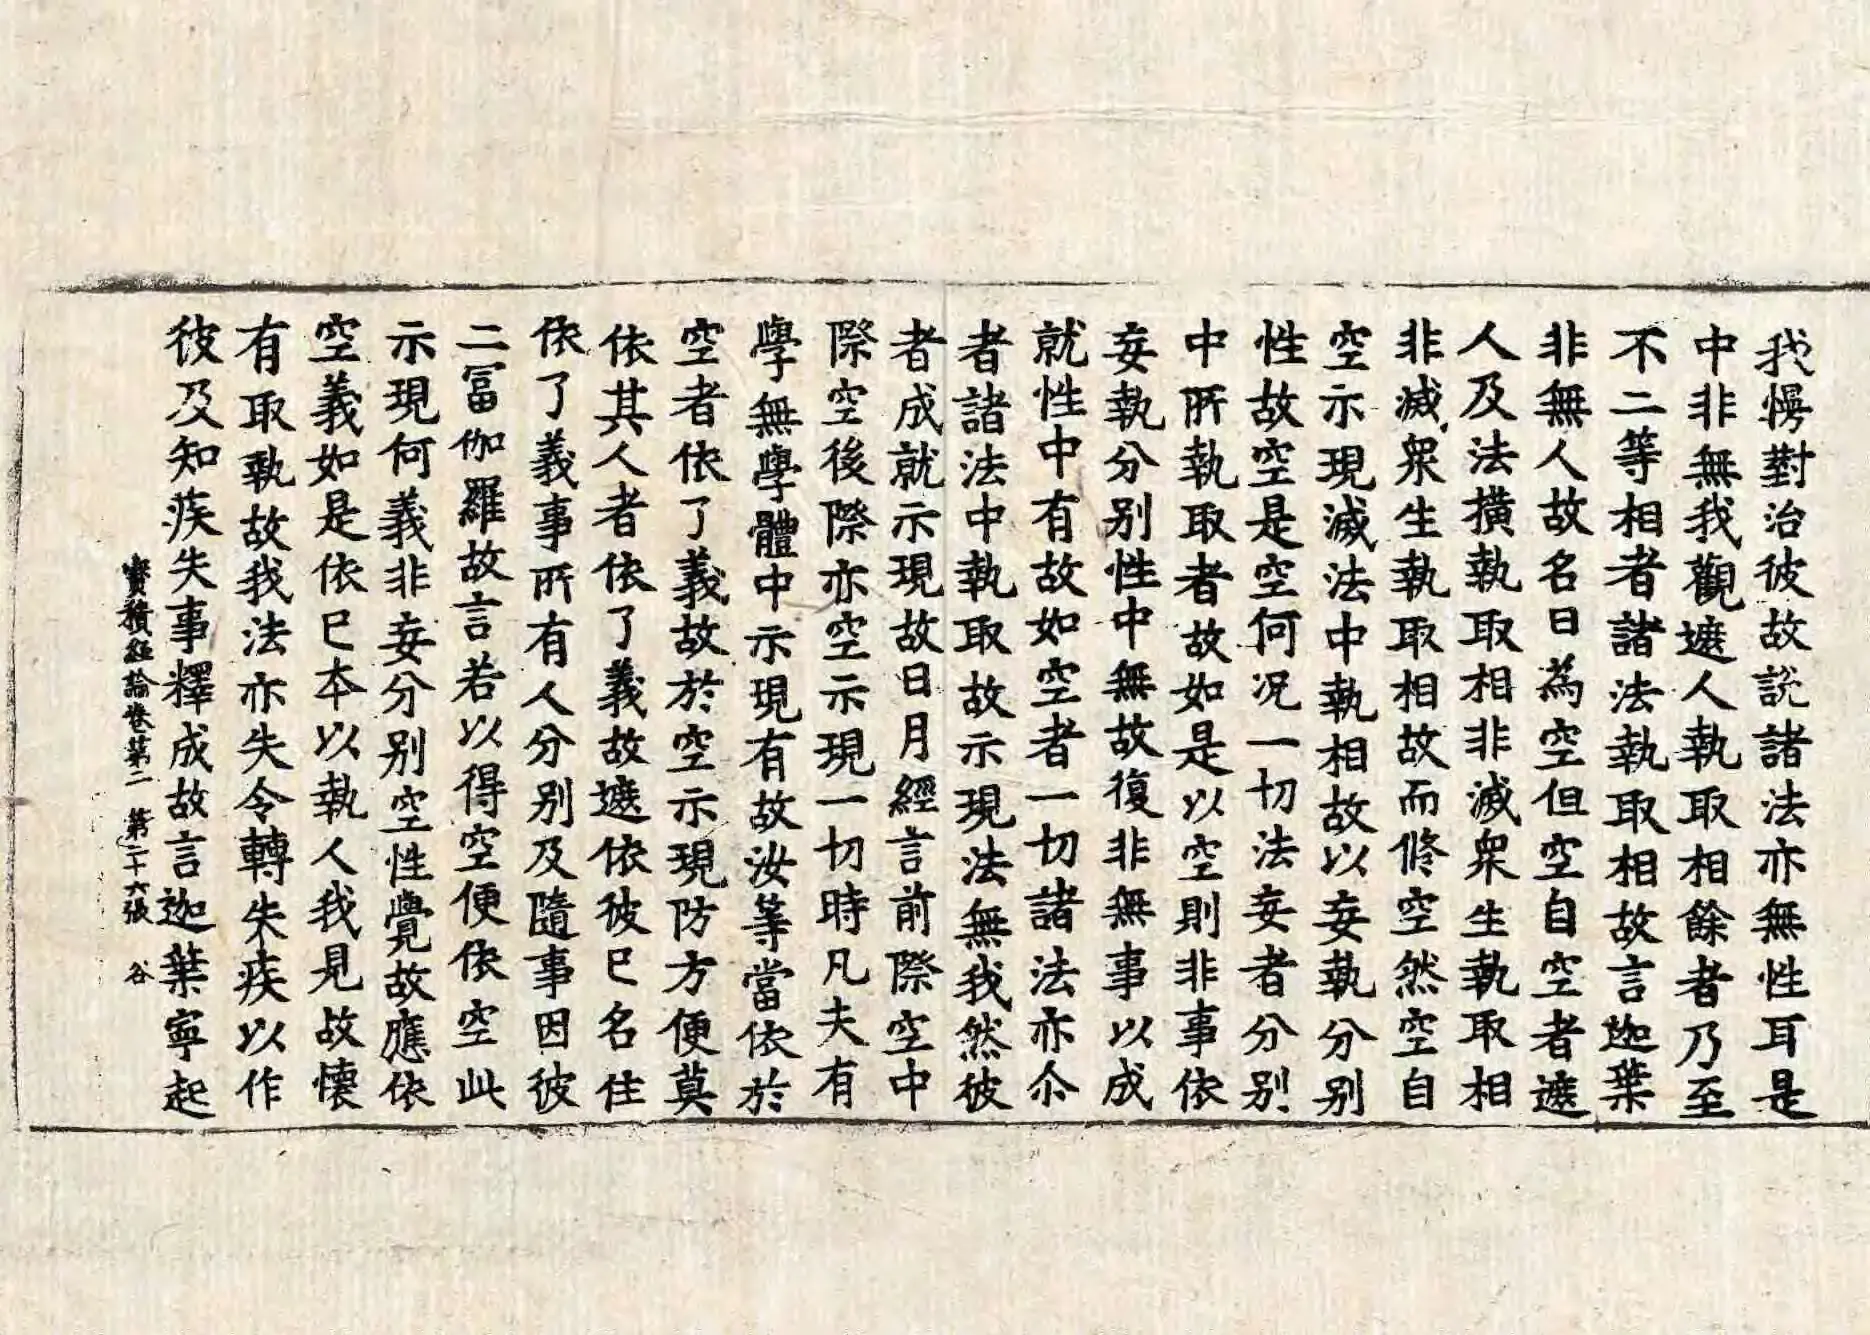 我慢對治彼故說諸法亦無性耳是
中非無我觀遮人執取相餘者乃至
不二等相者諸法執取相故言迦葉
非無人故名曰為空但空自空者遮
人及法橫執取相非滅眾生執取相
非滅衆生執取相故而修空然空自
空示現滅法中執相故以妄執分別
性故空是空何況一切法妄者分別
中所執取者故如是以空則非事依
妄執分別性中無故復非無事以成
就性中有故如空者一切諸法亦尒
者諸法中執取故示現法無我然彼
者成就示現故日月經言前際空中
際空後際亦空示現一切時凡夫有
學無學體中示現有故汝等當依於
空者依了義故於空示現防方便莫
依其人者依了義故遮依彼已名住
依了義事所有人分別及隨事因彼
二冨伽羅故言若以得空便依空此
示現何義非妄分別空性覺故應依
空義如是依已本以執人我見故懷
有取執故我法亦失令轉失疾以作
彼及知疾失事釋成故言迦葉寧起
寶積經論卷第二 第二十六張 谷